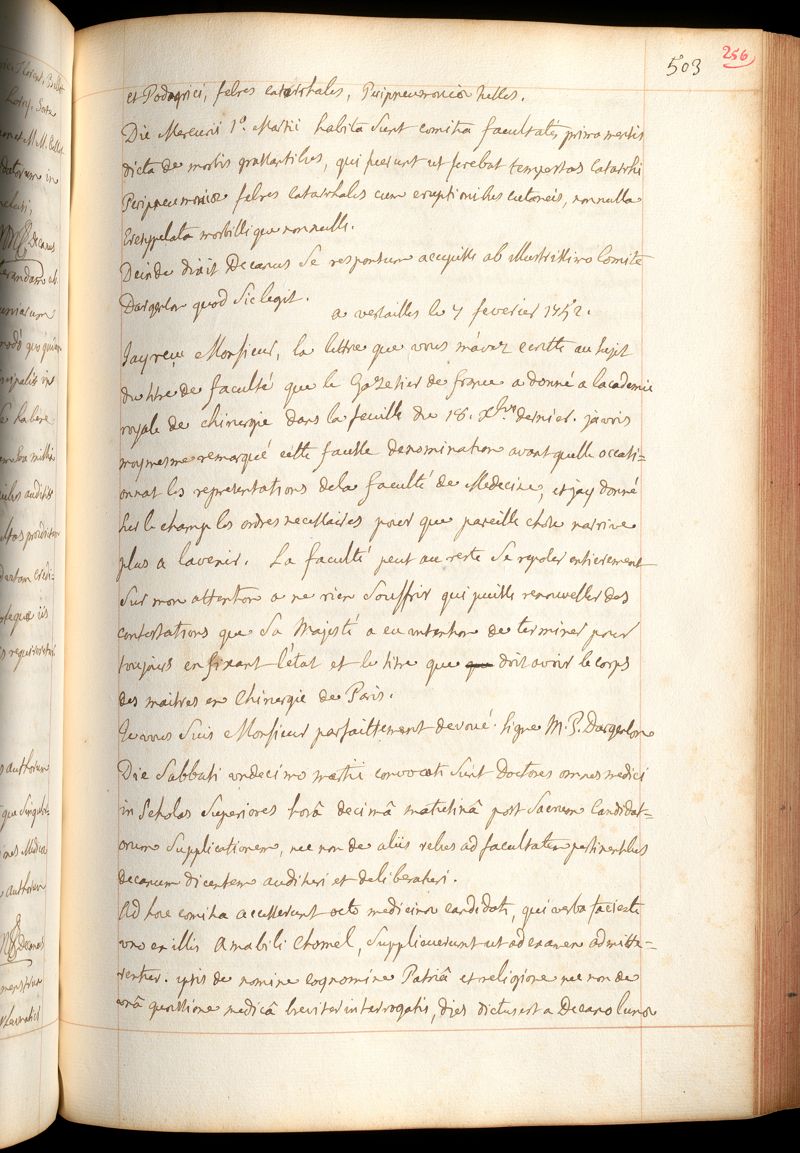 503
256
et Podagrici, febres catarrhales, Peripneumoniæ nelles.
Die Mercurii 1ª. Martii habita sunt comitia facultatis prima mensis
dicta de morbis grassantibus, qui fuerunt ut ferebat tempestas Catarrhi
Peripneumoniæ febres catarrhales cum eruptionibus cutaneis, nonnulla
Eresypelata morbillique nonnulli.
Deinde dixit Decanus se responsum accepisse ab illustrissimo Comite
Dargenson quod sic legit.
a versailles le 7 fevrier 1752.
Jay reçu Monsieur, la lettre que vous m'avez ecritte au sujet
du titre de faculté que le Gazetier de france a donné a lacademie
royale de chirurgie dans la feuille du 18. Xbre dernier. javois
moymesme remarqué cette fausse denomination avant quelle occasi=
onnat les representations dela faculté de Medecine, et jay donné
sur le champ les ordres necessaires pour que pareille chose narrive
plus a lavenir. La faculté peut au reste se reposer entierement
sur mon attention a ne rien souffrir qui puisse renouveller des
contestations que Sa Majesté a eu intention de terminer pour
toujours en fixant l'état et le titre que doit avoir le corps
des maitres en Chirurgie de Paris.
Je vous suis Monsieur parfaittement devoué. signé M. P. Dargenson
Die Sabbati undecimo martii convocati sunt doctores omnes medici
in Scholas superiores horâ decimâ matutinâ post sacrum Candidat=
orum supplicationem, nec non de aliis rebus ad facultatem pertinentibus
decanum dicentem audituri et deliberaturi.
Ad hæc comitia accesserunt octo medicinæ candidati, qui verba faciente
uno ex illis Amabili Chomel, supplicuerunt ut ad examen admitte=
rentur. ipsis de nomine cognomine Patriâ et religione nec non de
unâ quæstione medicâ breviter interrogatis, dies dictus est a Decano lunæ